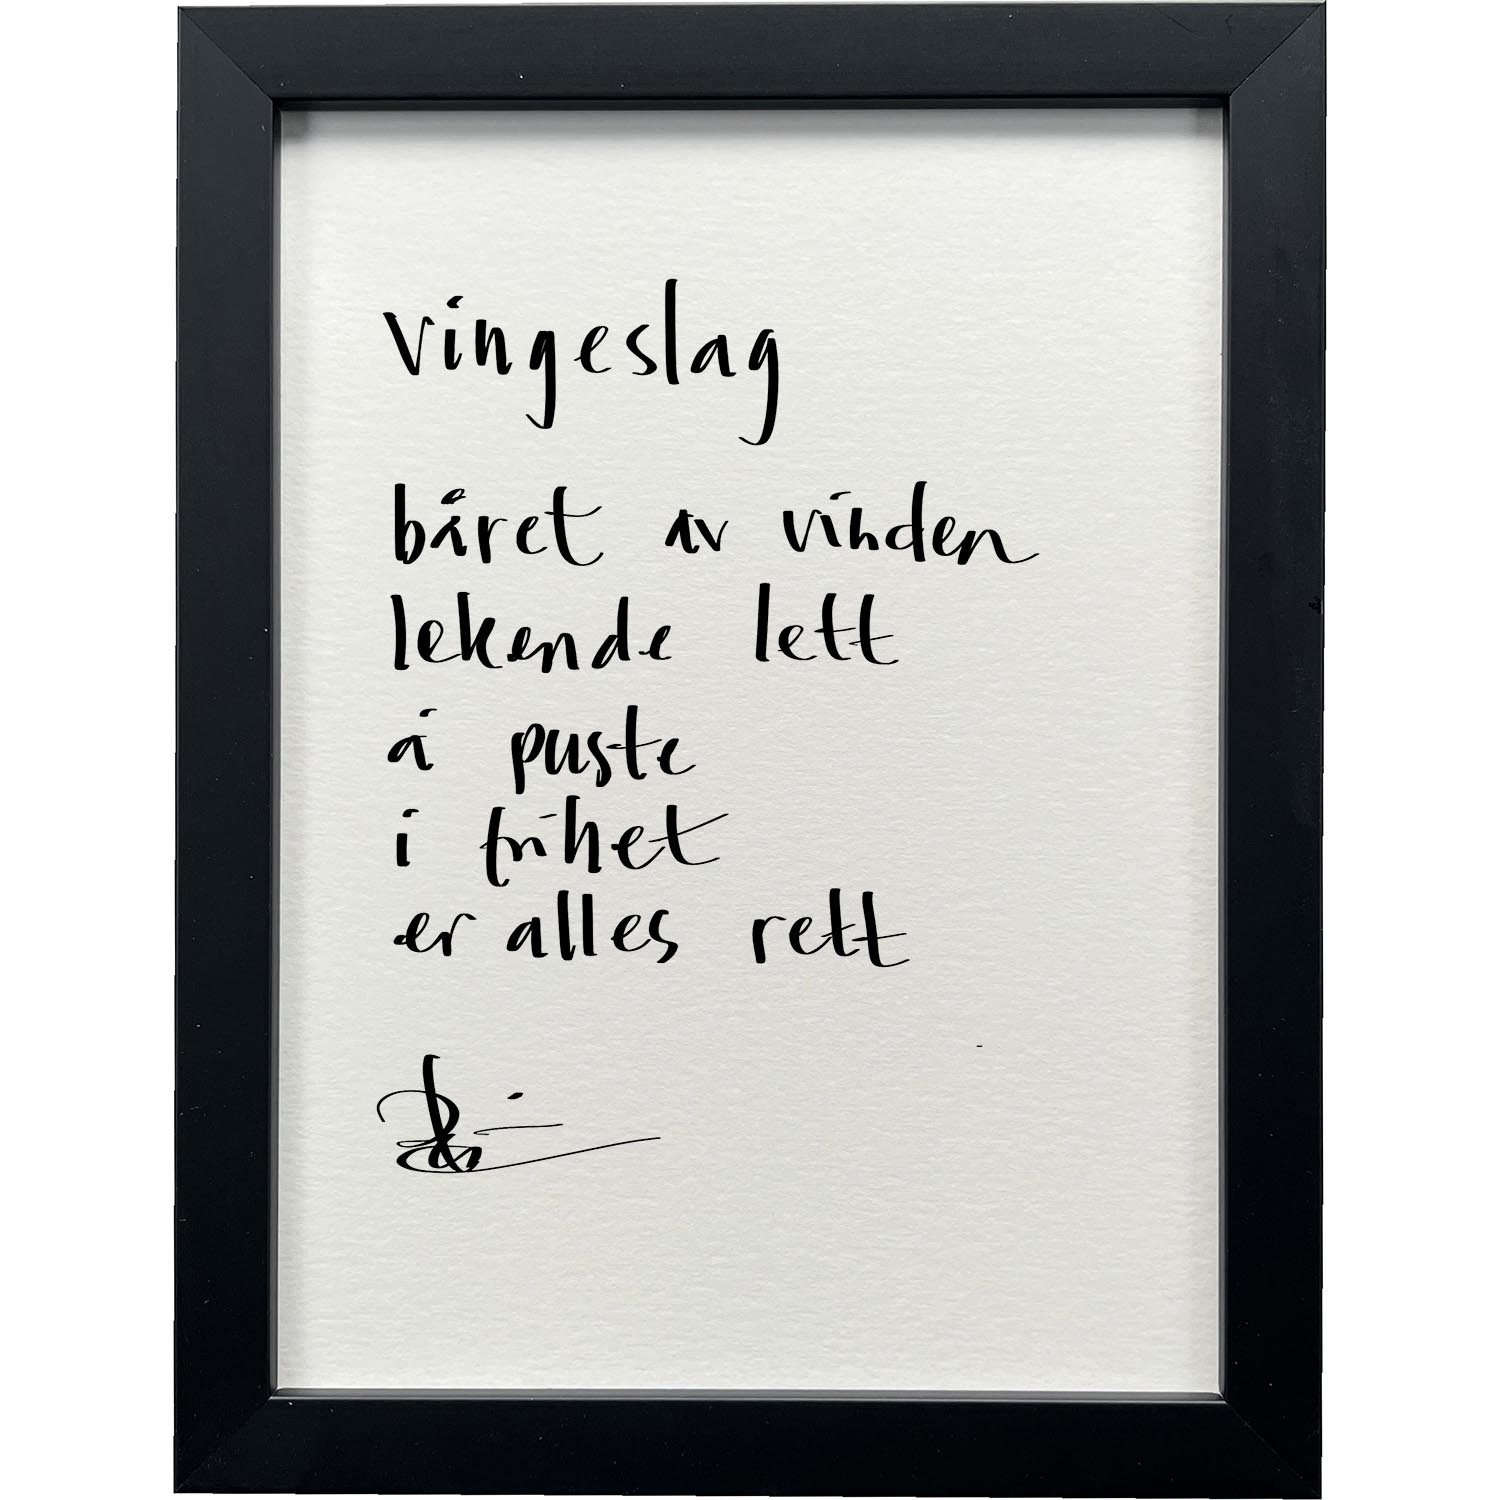 vingeslag
båret av vinden
lekende lett
å puste
i frihet
er alles rett